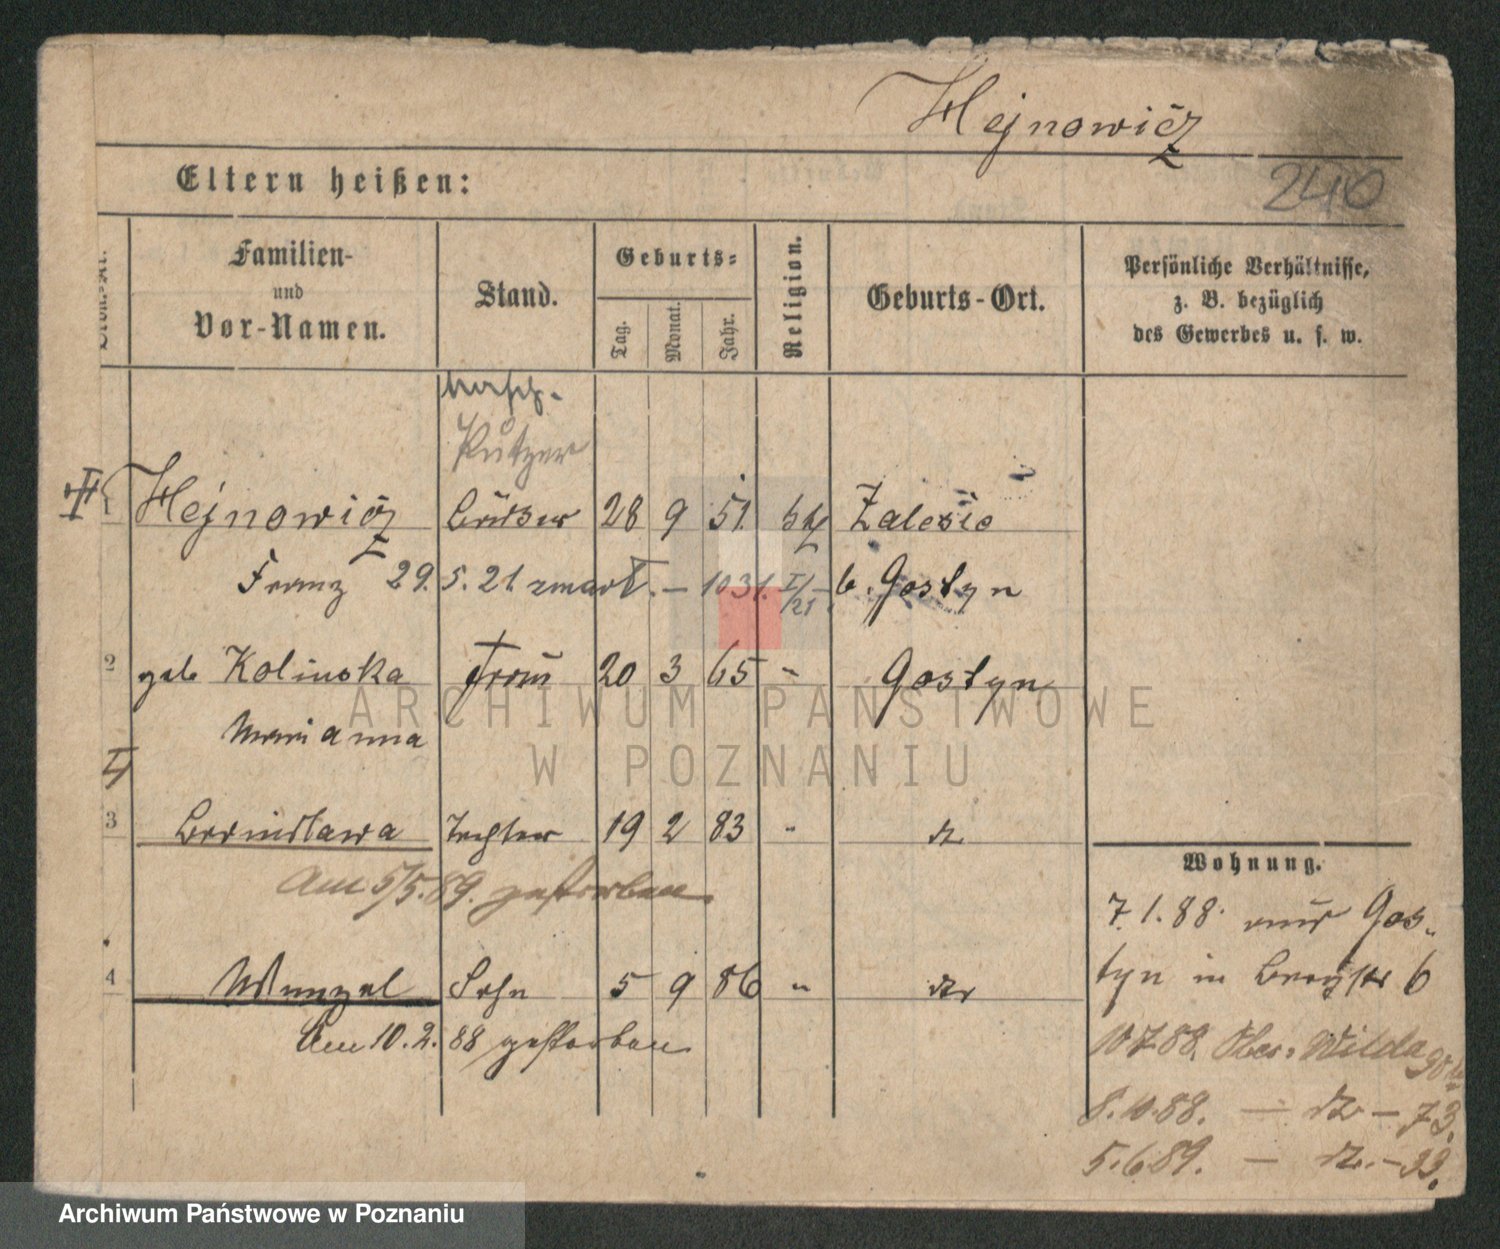 Hejnowicz
240
Eltern heißen:
Familien-
und
Vor-Namen.
Stand.
Geburts-
Tag.
Monat.
Jahr.
Religion.
Geburts-Ort.
Persönliche Verhältnisse,
z. B. bezüglich
des Gewerbes u. s. w.
Putzer
Hejnowicz 28 9 51. kth Zalesie
Franz 29. 5. 21 zmarł. – 1031. I/21 b. Gostyn
2 geb Kolinska Frau 20 3 65 " Gostyn
Marianna
3 Bronislawa Tochter 19 2 83 " do
Am 5/5. 89. gestorben.
4 Wenzel Sohn 5 9 86 " do
Am 10. 2. 88 gestorben
Wohnung.
7. 1. 88. aus Gos-
tyn in 6
10 7 88. Ober-Wilda
8. 10. 88. — do – 73.
5. 6. 89. — do. – 33.
ARCHIWUM PAŃSTWOWE
W POZNANIU
Archiwum Państwowe w Poznaniu